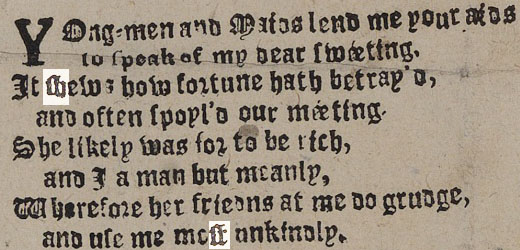 YOng-men and Maids lend me your aids
to speak of my dear sweeting,
It shews how fortune hath betray'd,
and often spoyl'd our meeting.
She likely was for to be rich,
and I a man but meanly,
Wherefore her friedns at me do grudge,
and use me most unkindly.